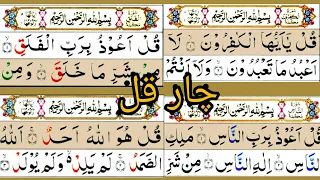 بِسْمِ اللهِ الرَّحْمٰنِ الرَّحِيْمِ
قُلْ يٰٓاَيُّهَا الْكٰفِرُوْنَ ۙ لَآ
اَعْبُدُ مَا تَعْبُدُوْنَ ۙ وَلَآ اَنْتُمْ
بِسْمِ اللهِ الرَّحْمٰنِ الرَّحِيْمِ
قُلْ اَعُوْذُ بِرَبِّ الْفَلَقِ ۙ
مِنْ شَرِّ مَا خَلَقَ ۙ وَمِنْ
چار قل
بِسْمِ اللهِ الرَّحْمٰنِ الرَّحِيْمِ
قُلْ اَعُوْذُ بِرَبِّ النَّاسِ ۙ مَلِكِ
النَّاسِ ۙ اِلٰهِ النَّاسِ ۙ مِنْ شَرِّ
بِسْمِ اللهِ الرَّحْمٰنِ الرَّحِيْمِ
قُلْ هُوَ اللهُ اَحَدٌ ۚ اَللهُ
الصَّمَدُ ۚ لَمْ يَلِدْ ۙ وَلَمْ يُوْلَدْ